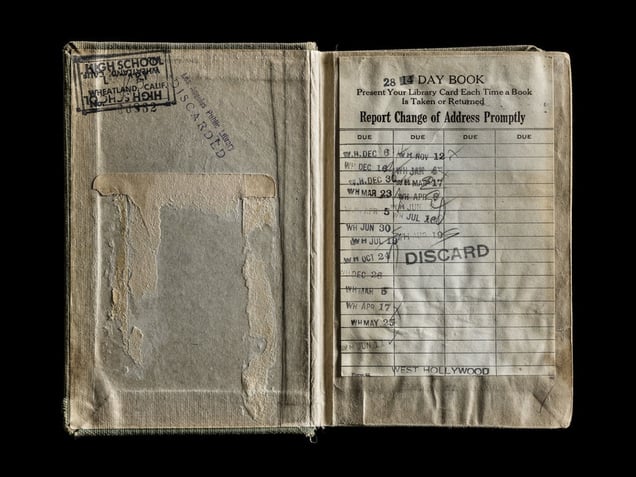 HIGH SCHOOL
WHEATLAND, CALIF.
HIGH SCHOOL
Los Angeles Public Library
DISCARDED
28 14 DAY BOOK
Present Your Library Card Each Time a Book
Is Taken or Returned
Report Change of Address Promptly
DUE DUE DUE DUE
W.H. DEC 6 WH NOV 12
WH DEC 16 WH JAN
W.H. DEC 30 WH MAR 17
WH MAR 23 WH APR
APR 5 WH JUN
WH JUL 16
WH JUN 30
WH JUL
WH OCT 24
DISCARD
DEC 26
WH MAR 5
WH APR 17
WH MAY 25
WH JUN
WEST HOLLYWOOD